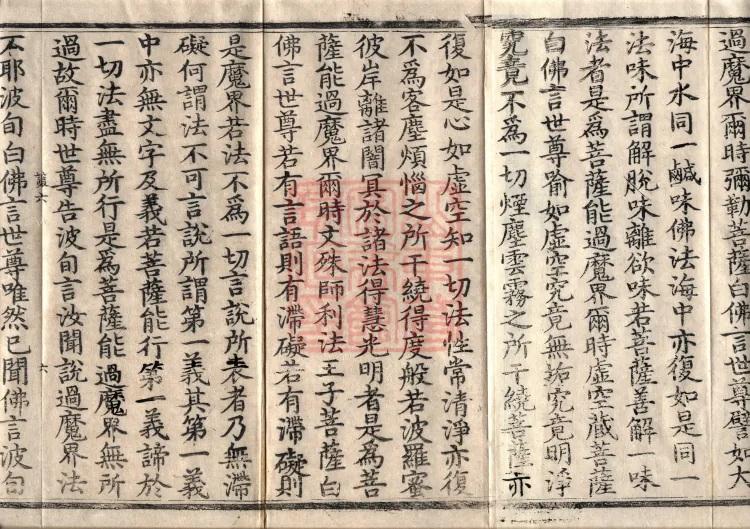 過魔界爾時彌勒菩薩白佛言世尊譬如大
海中水同一鹹味佛法海中亦復如是同一
法味所謂解脫味離欲味若菩薩善解一味
法者是為菩薩能過魔界爾時虛空藏菩薩
白佛言世尊喻如虛空究竟無垢究竟明淨
究竟不為一切煙塵雲霧之所干繞菩薩亦
復如是心如虛空知一切法性常清淨亦復
不為客塵煩惱之所干繞得度般若波羅蜜
彼岸離諸闇冥於諸法得慧光明者是為菩
薩能過魔界爾時文殊師利法王子菩薩白
佛言世尊若有言語則有滯礙若有滯礙則
是魔界若法不為一切言說所表者乃無滯
礙何謂法不可言說所謂第一義其第一義
中亦無文字及義若菩薩能行第一義諦於
一切法盡無所行是為菩薩能過魔界無所
過故爾時世尊告波旬言汝聞說過魔界法
不耶波旬白佛言世尊唯然已聞佛言波旬
六